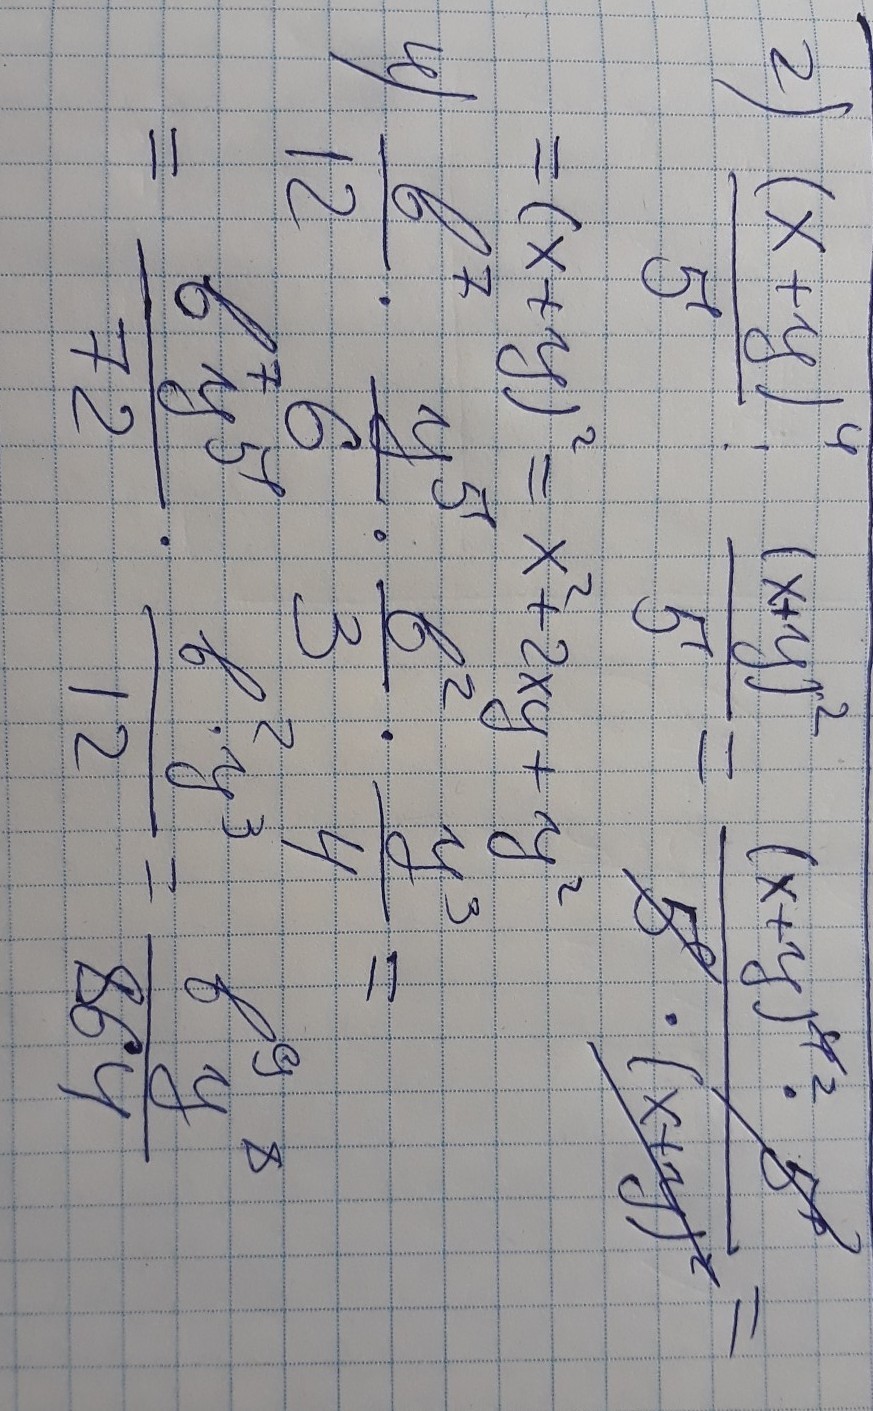 2) (x+y)⁴/5 : (x+y)²/5 = (x+y)⁴ ² · 5/5 · (x+y)² =
= (x+y)² = x² + 2xy + y²
4) b⁷/12 · y⁵/6 · b²/3 · y³/4 =
= b⁷y⁵/72 · b²·y³/12 = b⁹y⁸/864